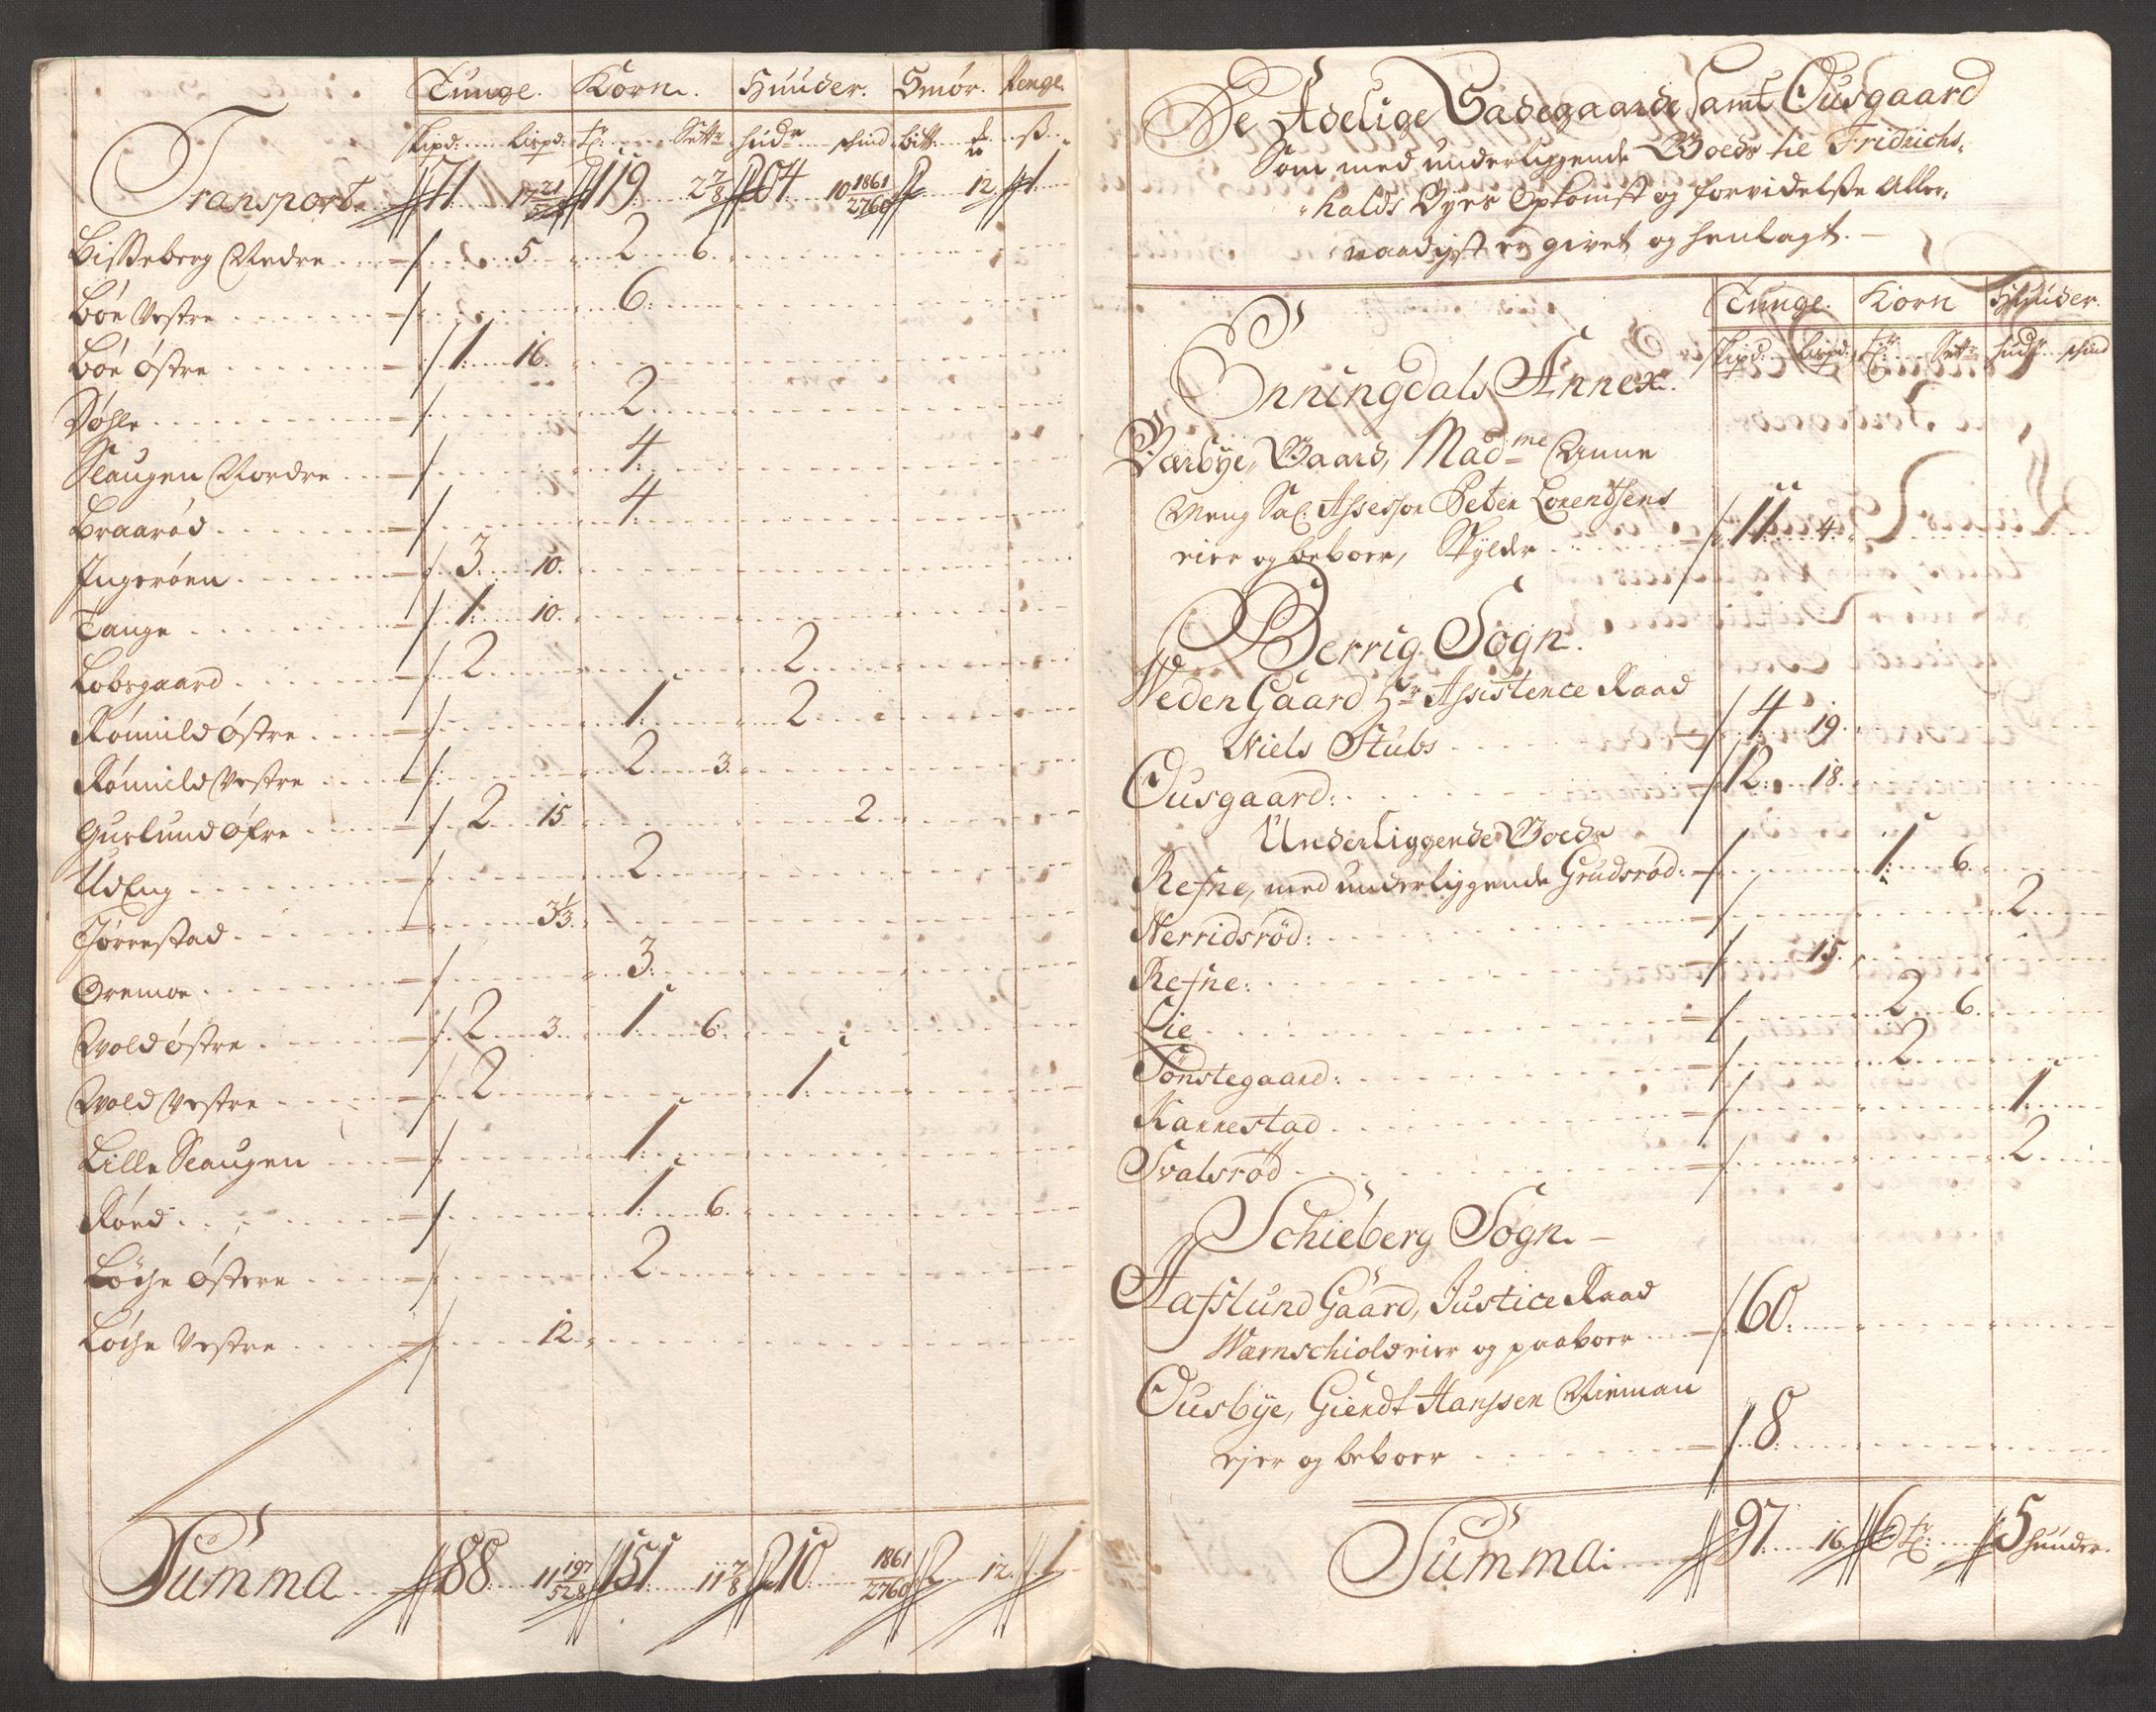 Tunge. Korn. Huuder. Smør. Penge.
Skpd: Lispd: Tr: Settr hudr skind bitt: ß
Transport 71 17 21/528 119 2 7/8 204 10 1861/2760 2 12 1
Bisseberg Nedre 5 2 6
Bøe Vestre 6
Bøe Østre 1 16
Døhle 2
Slaugen Nordre 4
Braarød 4
Ingerøen 3 10
Tange 1 10
Lobsgaard 2 2
Rømild Østre 1 2
Rømild Vestre 2 3
Guslund Øfre 2 15 2
UdEng 2
Tørrestad 3 1/3
Oremoe 3
Wold Østre 2 3 1 6
Wold Vestre 2 1
Lille Slaugen 1
Røed 1 6
Løche Østere 2
Løche Vestre 12
Summa 88 11 197/528 151 11 7/8 210 1861/2760 2 12 1
De Adelige Sædegaarde samt Ousgaard
Som med underliggende Goeds til Fridrichs,
halds Byes Opkomst og forvidelße Aller,
naadigst er givet og henlagt.
Tunge. Korn Huuder.
Skpd: Lispd: Tr: Settr hudr skind
Enningdals Annex.
Berbye, Gaard, Madme Anne
Meng Sal. Assessor Peter Lorentsens
eier og beboer, Skylder 11 4
Berrig Sogn.
Weden Gaard Hr Assistence Raad
Niels Stubs 4 19
Ousgaard: 12 18
Underliggende Goeds
Refne, med underliggende Grudsrød: 1 6
Nerridsrød: 2
Refne: 15
Lie 2 6
Tønstegaard: 2
Kannestad 1
Svalsrød 2
Schieberg Sogn.
Hafslund Gaard, Justice Raad
Wærnschiold eier og paaboer 60
Ousbye, Giendt Hanssen Nieman
ejer og beboer 8
Summa: 97 16 6 Tr: 5 huuder.